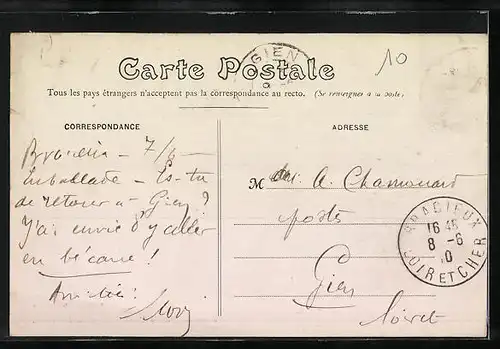 GIEN
10
Carte Postale
Tous les pays étrangers n'acceptent pas la correspondance au recto. (Se renseigner à la poste)
CORRESPONDANCE
ADRESSE
7/6 —
Emballade — Es-tu
de retour à Gien ?
J'ai envie d'y aller
en bécane !
Amitiés :
M A. Chamouard
postes
Gien
Loiret
BRACIEUX
16 45
8 - 6
10
LOIR ET CHER